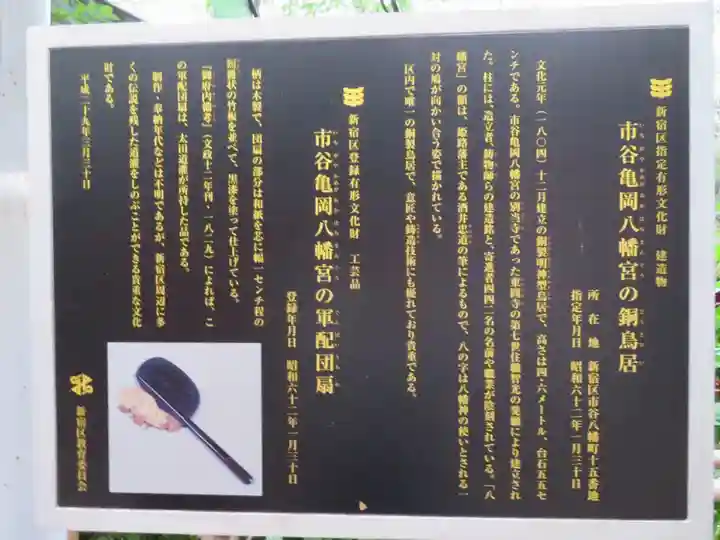 新宿区指定有形文化財 建造物
いちがやかめがおかはちまんぐう どうとりい
市谷亀岡八幡宮の銅鳥居
所在地 新宿区市谷八幡町十五番地
指定年月日 昭和六十二年一月三十日
文化元年（一八〇四）十二月建立の銅製明神型鳥居で、高さは四・六メートル、台石五五セ
ンチである。市谷亀岡八幡宮の別当寺であった東円寺の第七世住職智光の発願により建立され
た。柱には、造立者、鋳物師らの建造銘と、寄進者四四二名の名前や職業が陰刻されている。「八
幡宮」の額は、姫路藩主である酒井忠道の筆によるもので、八の字は八幡神の使いとされる一
対の鳩が向かい合う姿で描かれている。
区内で唯一の銅製鳥居で、意匠や鋳造技術にも優れており貴重である。
新宿区登録有形文化財 工芸品
いちがやかめがおかはちまんぐう ぐんばいうちわ
市谷亀岡八幡宮の軍配団扇
登録年月日 昭和六十二年一月三十日
柄は木製で、団扇の部分は和紙を芯に幅一センチ程の
短冊状の竹板を並べて、黒漆を塗って仕上げている。
『御府内備考』（文政十二年刊・一八二九）によれば、こ
の軍配団扇は、太田道灌が所持した品である。
制作・奉納年代などは不明であるが、新宿区周辺に多
くの伝説を残した道灌をしのぶことができる貴重な文化
財である。
平成二十九年三月三十日
新宿区教育委員会